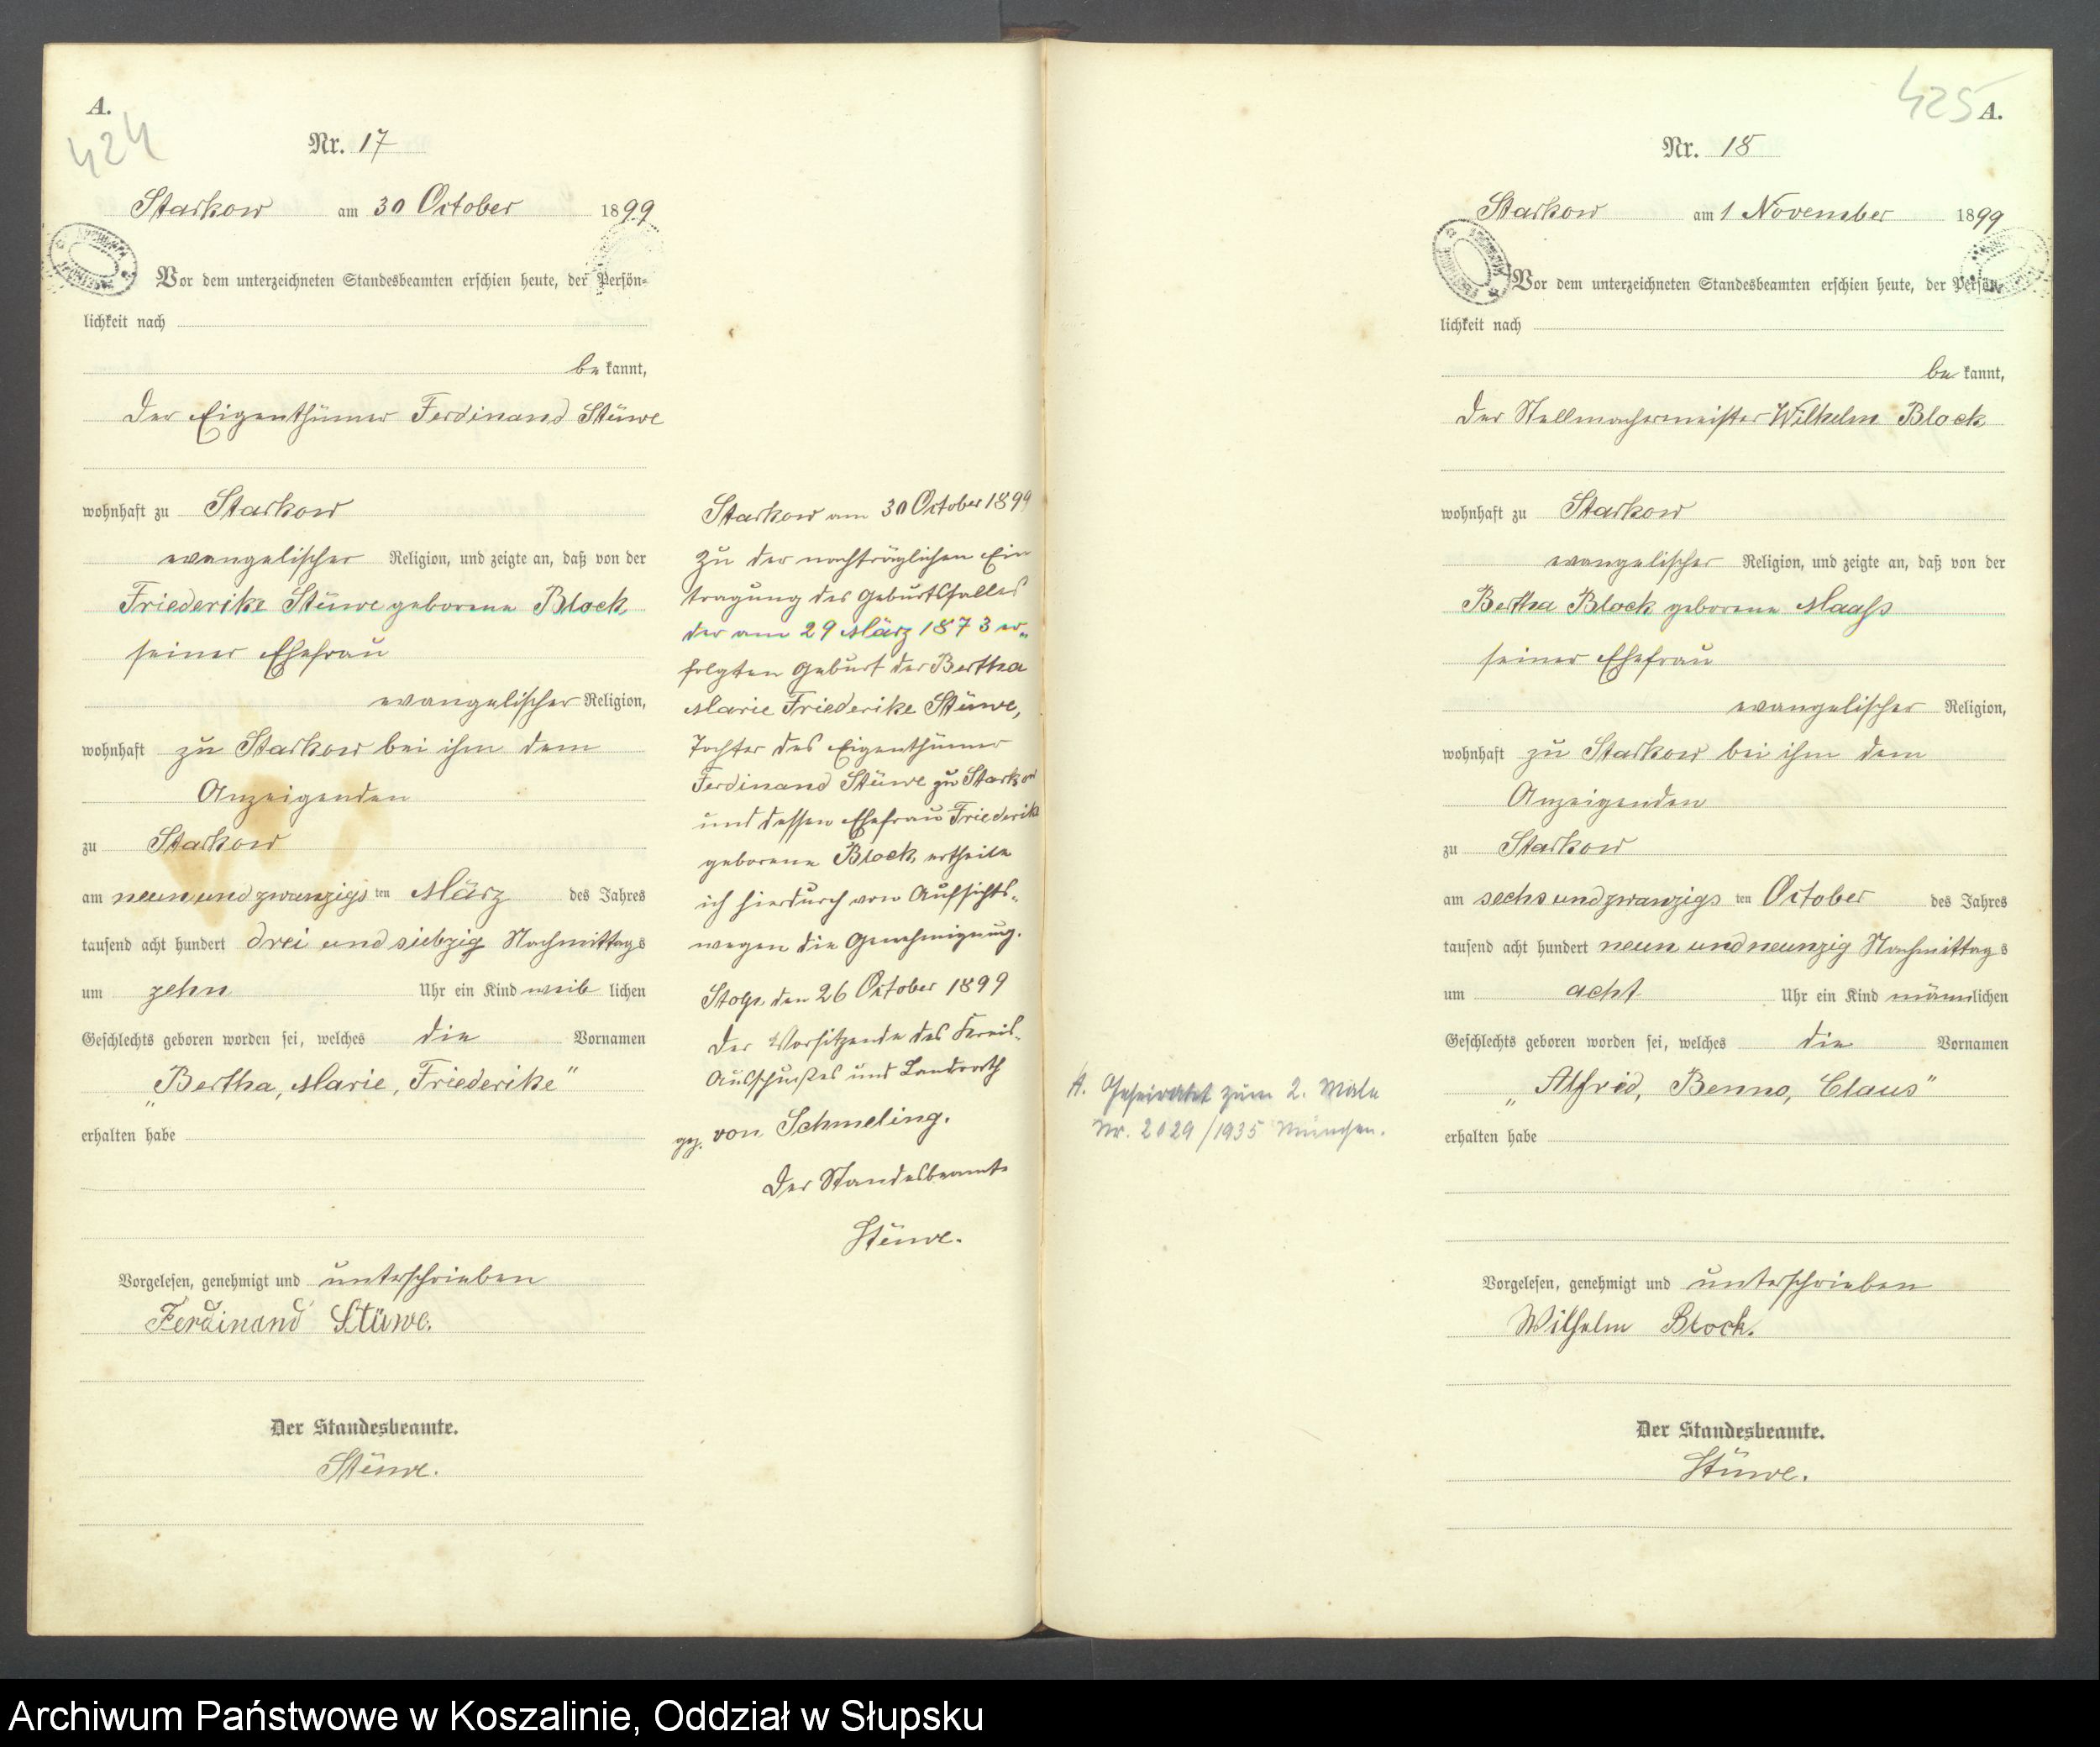 A.
424
Nr. 17
Starkow am 30 October 1899
Vor dem unterzeichneten Standesbeamten erschien heute, der Persön-
lichkeit nach
be kannt,
der Eigenthümer Ferdinand Stüwe
wohnhaft zu Starkow
evangelischer Religion, und zeigte an, daß von der
Friederike Stüwe geborene Block
seiner Ehefrau
evangelischer Religion,
wohnhaft zu Starkow bei ihm dem
Anzeigenden
zu Starkow
am neunundzwanzigs ten März des Jahres
tausend acht hundert drei und siebzig Nachmittags
um zehn Uhr ein Kind weib lichen
Geschlechts geboren worden sei, welches die Vornamen
„Bertha, Marie, Friederike"
erhalten habe
Vorgelesen, genehmigt und unterschrieben
Ferdinand Stüwe.
Der Standesbeamte.
Stüwe.
Starkow am 30 October 1899
Zu der nachträglichen Ein
tragung des Geburtsfalles
der am 29 März 1873 er„
folgten Geburt der Bertha
Marie Friederike Stüwe,
Tochter des Eigenthümer
Ferdinand Stüwe zu Starkow
und dessen Ehefrau Friederike
geborene Block, ertheile
ich hierdurch von Aufsichts„
wegen die Genehmigung.
Stolp, den 26 Oktober 1899
Der Vorsitzende des Kreis-
Ausschußes und Landrath
gez. von Schmeling.
Der Standesbeamte
Stüwe.
425
A.
Nr. 18
Starkow am 1 November 1899
Vor dem unterzeichneten Standesbeamten erschien heute, der Persön-
lichkeit nach
be kannt,
der Stellmachermeister Wilhelm Block
wohnhaft zu Starkow
evangelischer Religion, und zeigte an, daß von der
Bertha Block geborene Maaß
seiner Ehefrau
evangelischer Religion,
wohnhaft zu Starkow bei ihm dem
Anzeigenden
zu Starkow
am sechsundzwanzigs ten October des Jahres
tausend acht hundert neun und neunzig Nachmittag s
um acht Uhr ein Kind männlichen
Geschlechts geboren worden sei, welches die Vornamen
„Alfrid, Benno, Claus"
erhalten habe
Vorgelesen, genehmigt und unterschrieben
Wilhelm Block.
Der Standesbeamte.
Stüwe.
A. Geheiratet zum 2. Male
Nr. 2029/1935 München.
Archiwum Państwowe w Koszalinie, Oddział w Słupsku